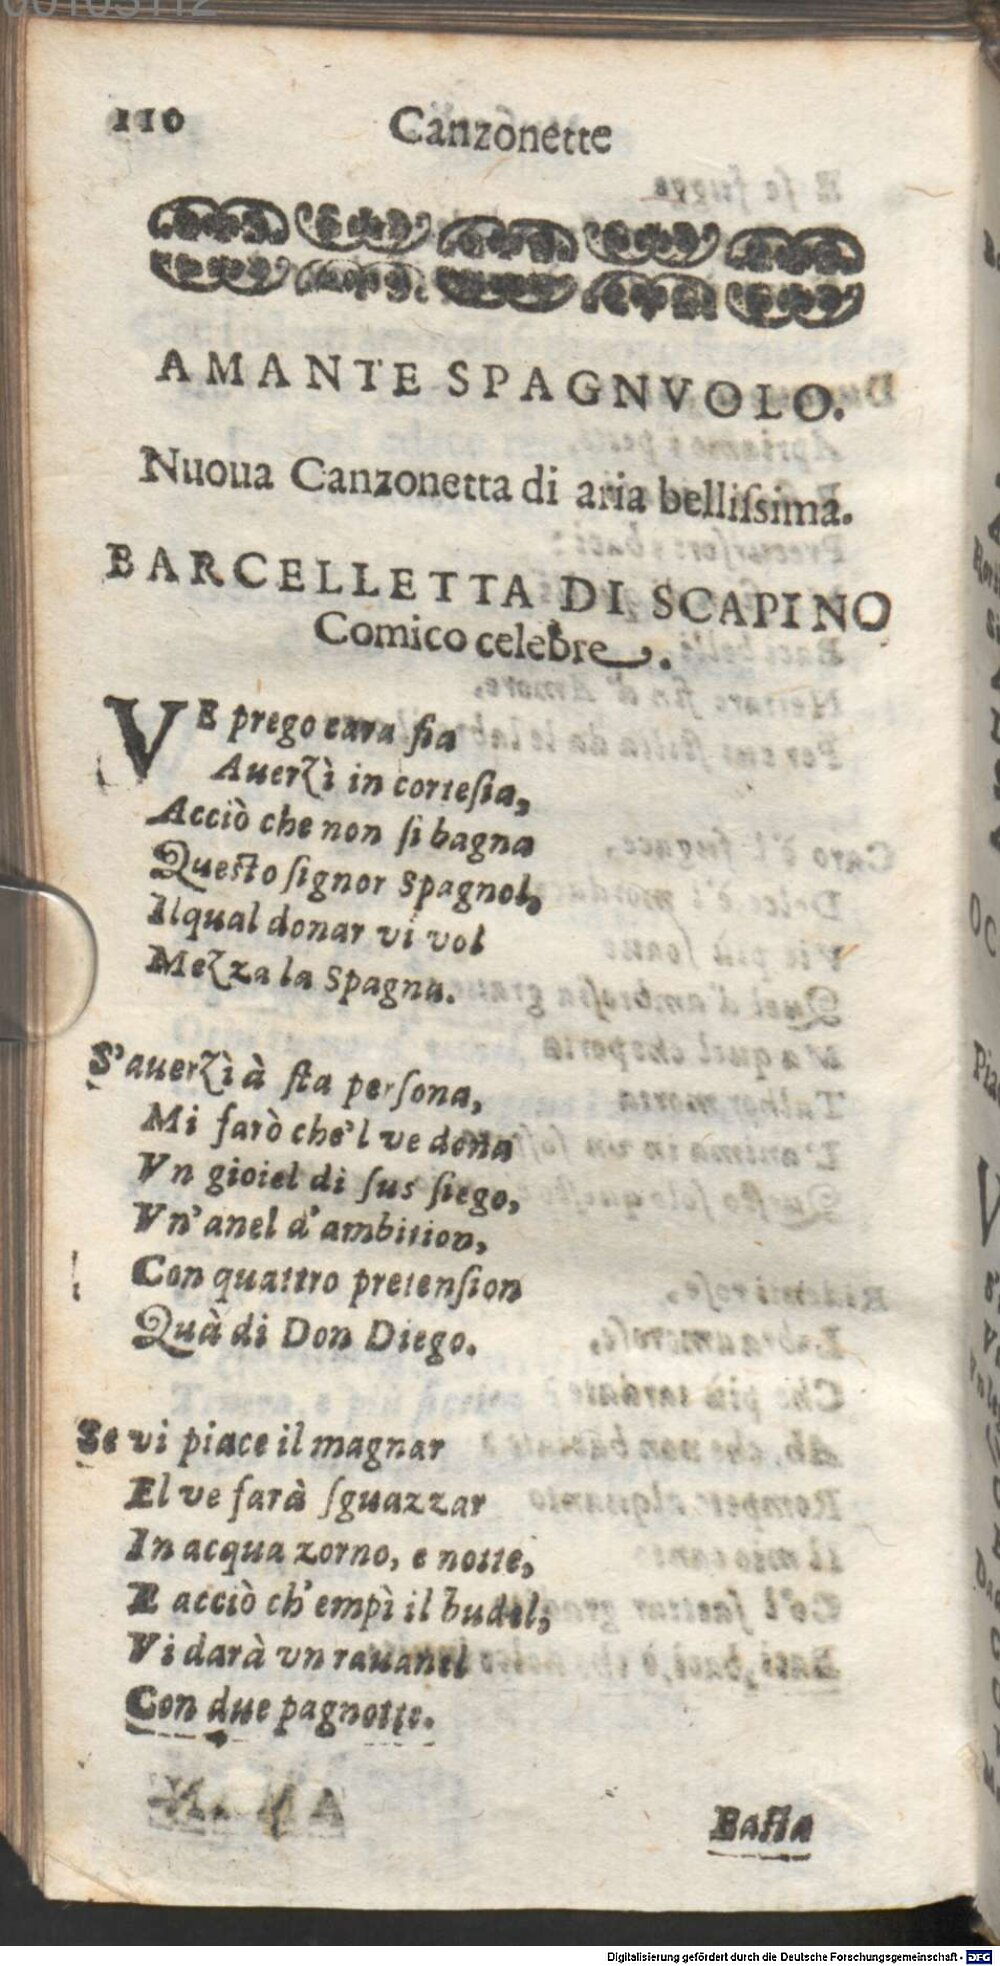 110
Canzonette
AMANTE SPAGNVOLO.
Nuoua Canzonetta di aria belliſsima.
BARCELLETTA DI SCAPINO
Comico celebre.
VE prego cara fia
Auerzì in corteſia,
Acciò che non ſi bagna
Queſto ſignor Spagnol,
Ilqual donar vi vol
Mezza la Spagna.
S'auerzì à ſta perſona,
Mi farò che'l ve dona
Vn gioiel di ſus ſiego,
Vn'anel d'ambition,
Con quattro pretenſion
Quà di Don Diego.
Se vi piace il magnar
El ve farà ſguazzar
In acqua zorno, e notte,
E acciò ch'empì il budel,
Vi darà vn rauanel
Con due pagnotte.
Baſta
Digitalisierung gefördert durch die Deutsche Forschungsgemeinschaft - DFG